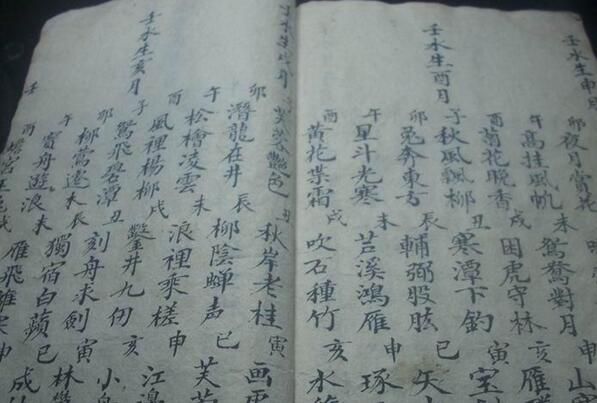 壬水生申月
卯夜月賞花
午高挂風帆 未鴛鴦對月 申山
酉菊花晚香 戌困虎守林 亥雁
壬水生酉月
子秋風飄柳 丑寒潭下釣 寅宝
卯兔奔東方 辰輔弼股肱 巳矢
午里斗光寒 未苕溪鴻雁 申琢
酉黄花霜 戌吹石種竹 亥水
壬水生戌月
子芙蓉艷色 丑秋岸老桂 寅画
卯潛龍在井 辰柳陰蟬声 巳芙
午松檜凌雲 未浪裡乘槎 申江
酉風裡楊柳 戌鑿井九仞 亥小
壬水生亥月
子鴛飛潭 丑刻舟求劍 寅林
卯柳鶯遷木 辰獨宿白蘋 巳成
午舟遊浪 未雁飛
酉